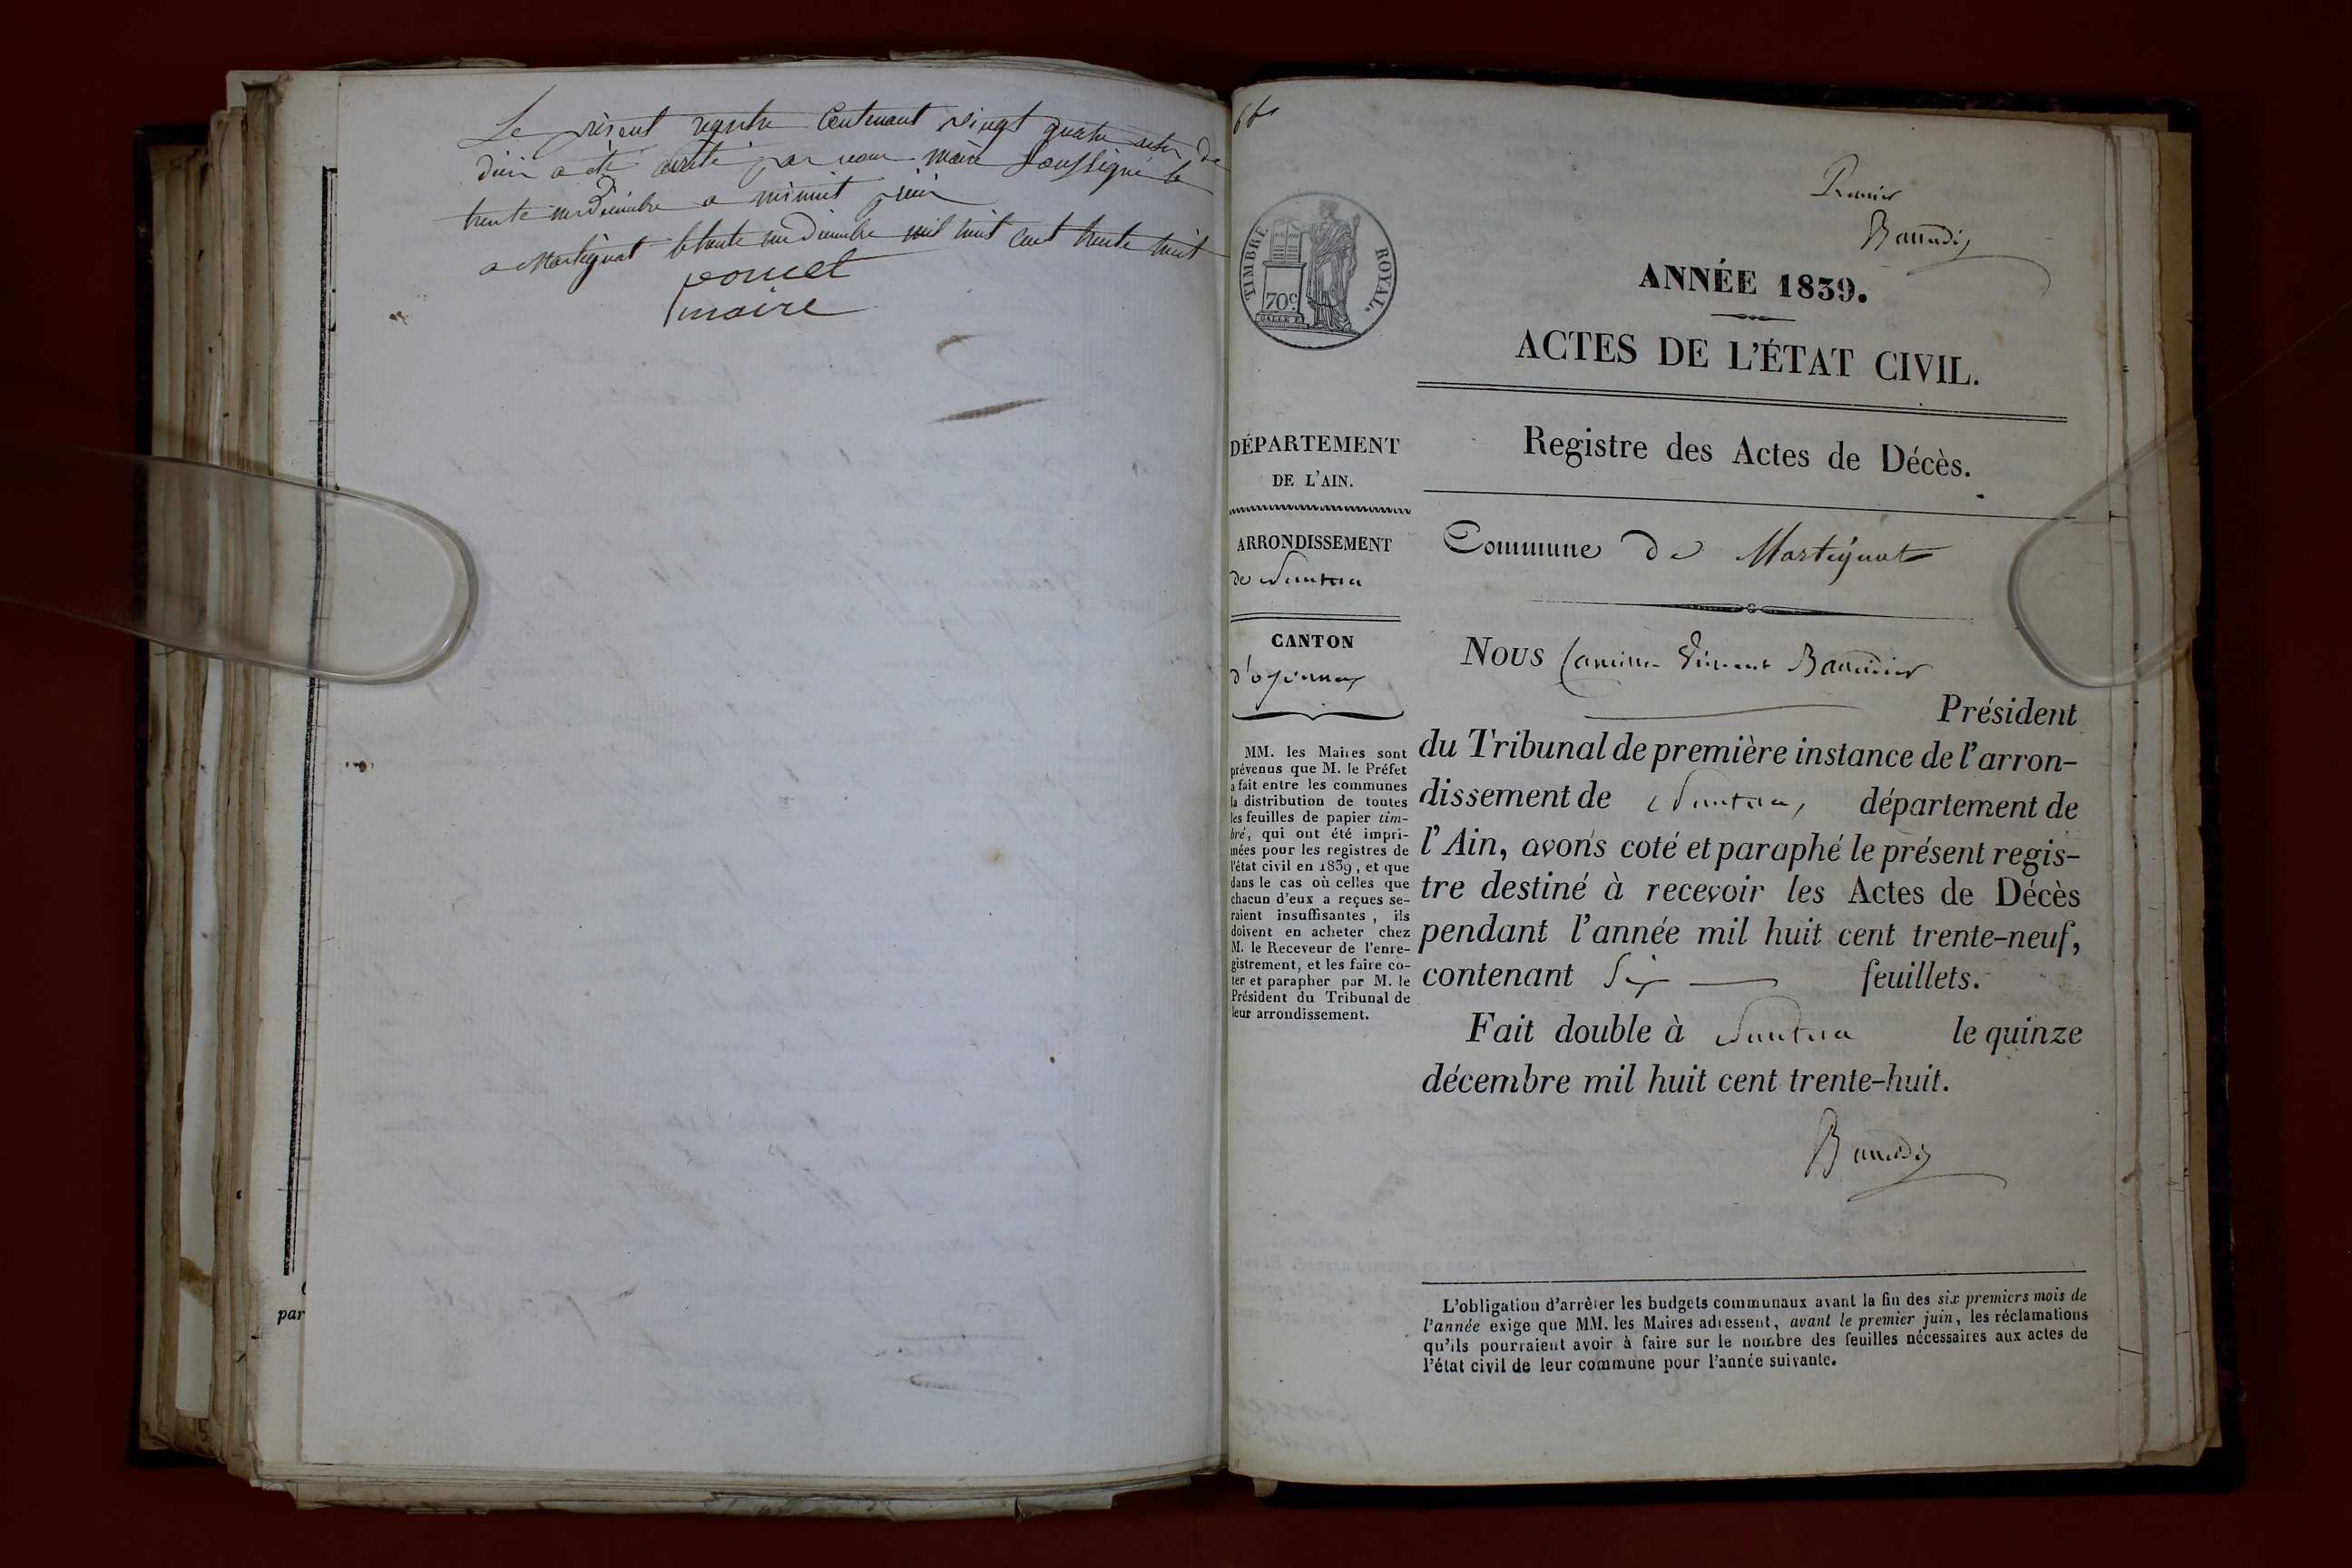 Le présent registre Contenant vingt quatre actes de
décès a été arrêté par nous maire Soussigné le
trente un décembre a minuit
a Martignat le trente un décembre mil huit cent trente huit
poncet
maire
par
Premier
ANNÉE 1839.
TIMBRE ROYAL.
70c
ACTES DE L'ÉTAT CIVIL.
DÉPARTEMENT
DE L'AIN.
Registre des Actes de Décès.
ARRONDISSEMENT
de Nantua
Commune de Martignat
CANTON
d'oyonnax
Nous Camille Vincent
Président
du Tribunal de première instance de l'arron-
dissement de Nantua, département de
l'Ain, avons coté et paraphé le présent regis-
tre destiné à recevoir les Actes de Décès
pendant l'année mil huit cent trente-neuf,
contenant Six feuillets.
Fait double à Nantua le quinze
décembre mil huit cent trente-huit.
MM. les Maires sont
prévenus que M. le Préfet
a fait entre les communes
la distribution de toutes
les feuilles de papier tim-
bré, qui ont été impri-
mées pour les registres de
l'état civil en 1839, et que
dans le cas où celles que
chacun d'eux a reçues se-
raient insuffisantes, ils
doivent en acheter chez
M. le Receveur de l'enre-
gistrement, et les faire co-
ter et parapher par M. le
Président du Tribunal de
leur arrondissement.
L'obligation d'arrêter les budgets communaux avant la fin des six premiers mois de
l'année exige que MM. les Maires adressent, avant le premier juin, les réclamations
qu'ils pourraient avoir à faire sur le nombre des feuilles nécessaires aux actes de
l'état civil de leur commune pour l'année suivante.